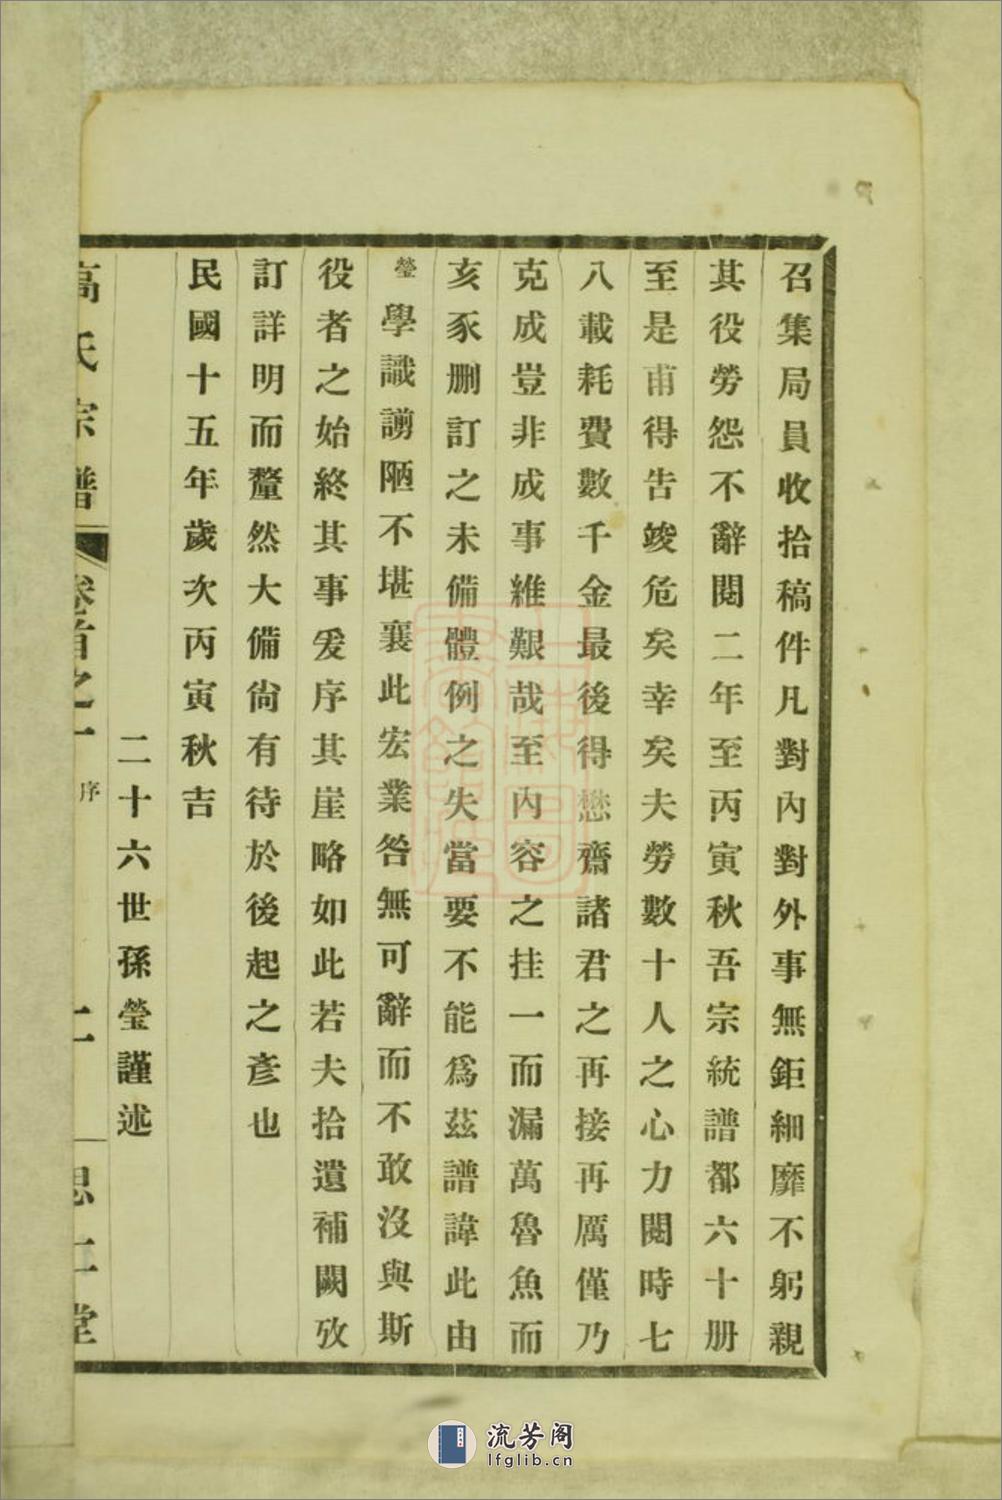 召集局員收拾稿件凡對內對外事無鉅細靡不躬親
其役勞怨不辭閱二年至丙寅秋吾宗統譜都六十册
至是甫得告竣危矣幸矣夫勞數十人之心力閱時七
八載耗費數千金最後得懋齋諸君之再接再厲僅乃
克成豈非成事維艱哉至內容之挂一而漏萬魯魚而
亥豕刪訂之未備體例之失當要不能爲茲譜諱此由
瑩學識謭陋不堪襄此宏業咎無可辭而不敢沒與斯
役者之始終其事爰序其崖略如此若夫拾遺補闕攷
訂詳明而釐然大備尙有待於後起之彥也
民國十五年歲次丙寅秋吉
二十六世孫瑩謹述
高氏宗譜 卷首之一 序 二 思一堂
流芳阁
lfglib.cn